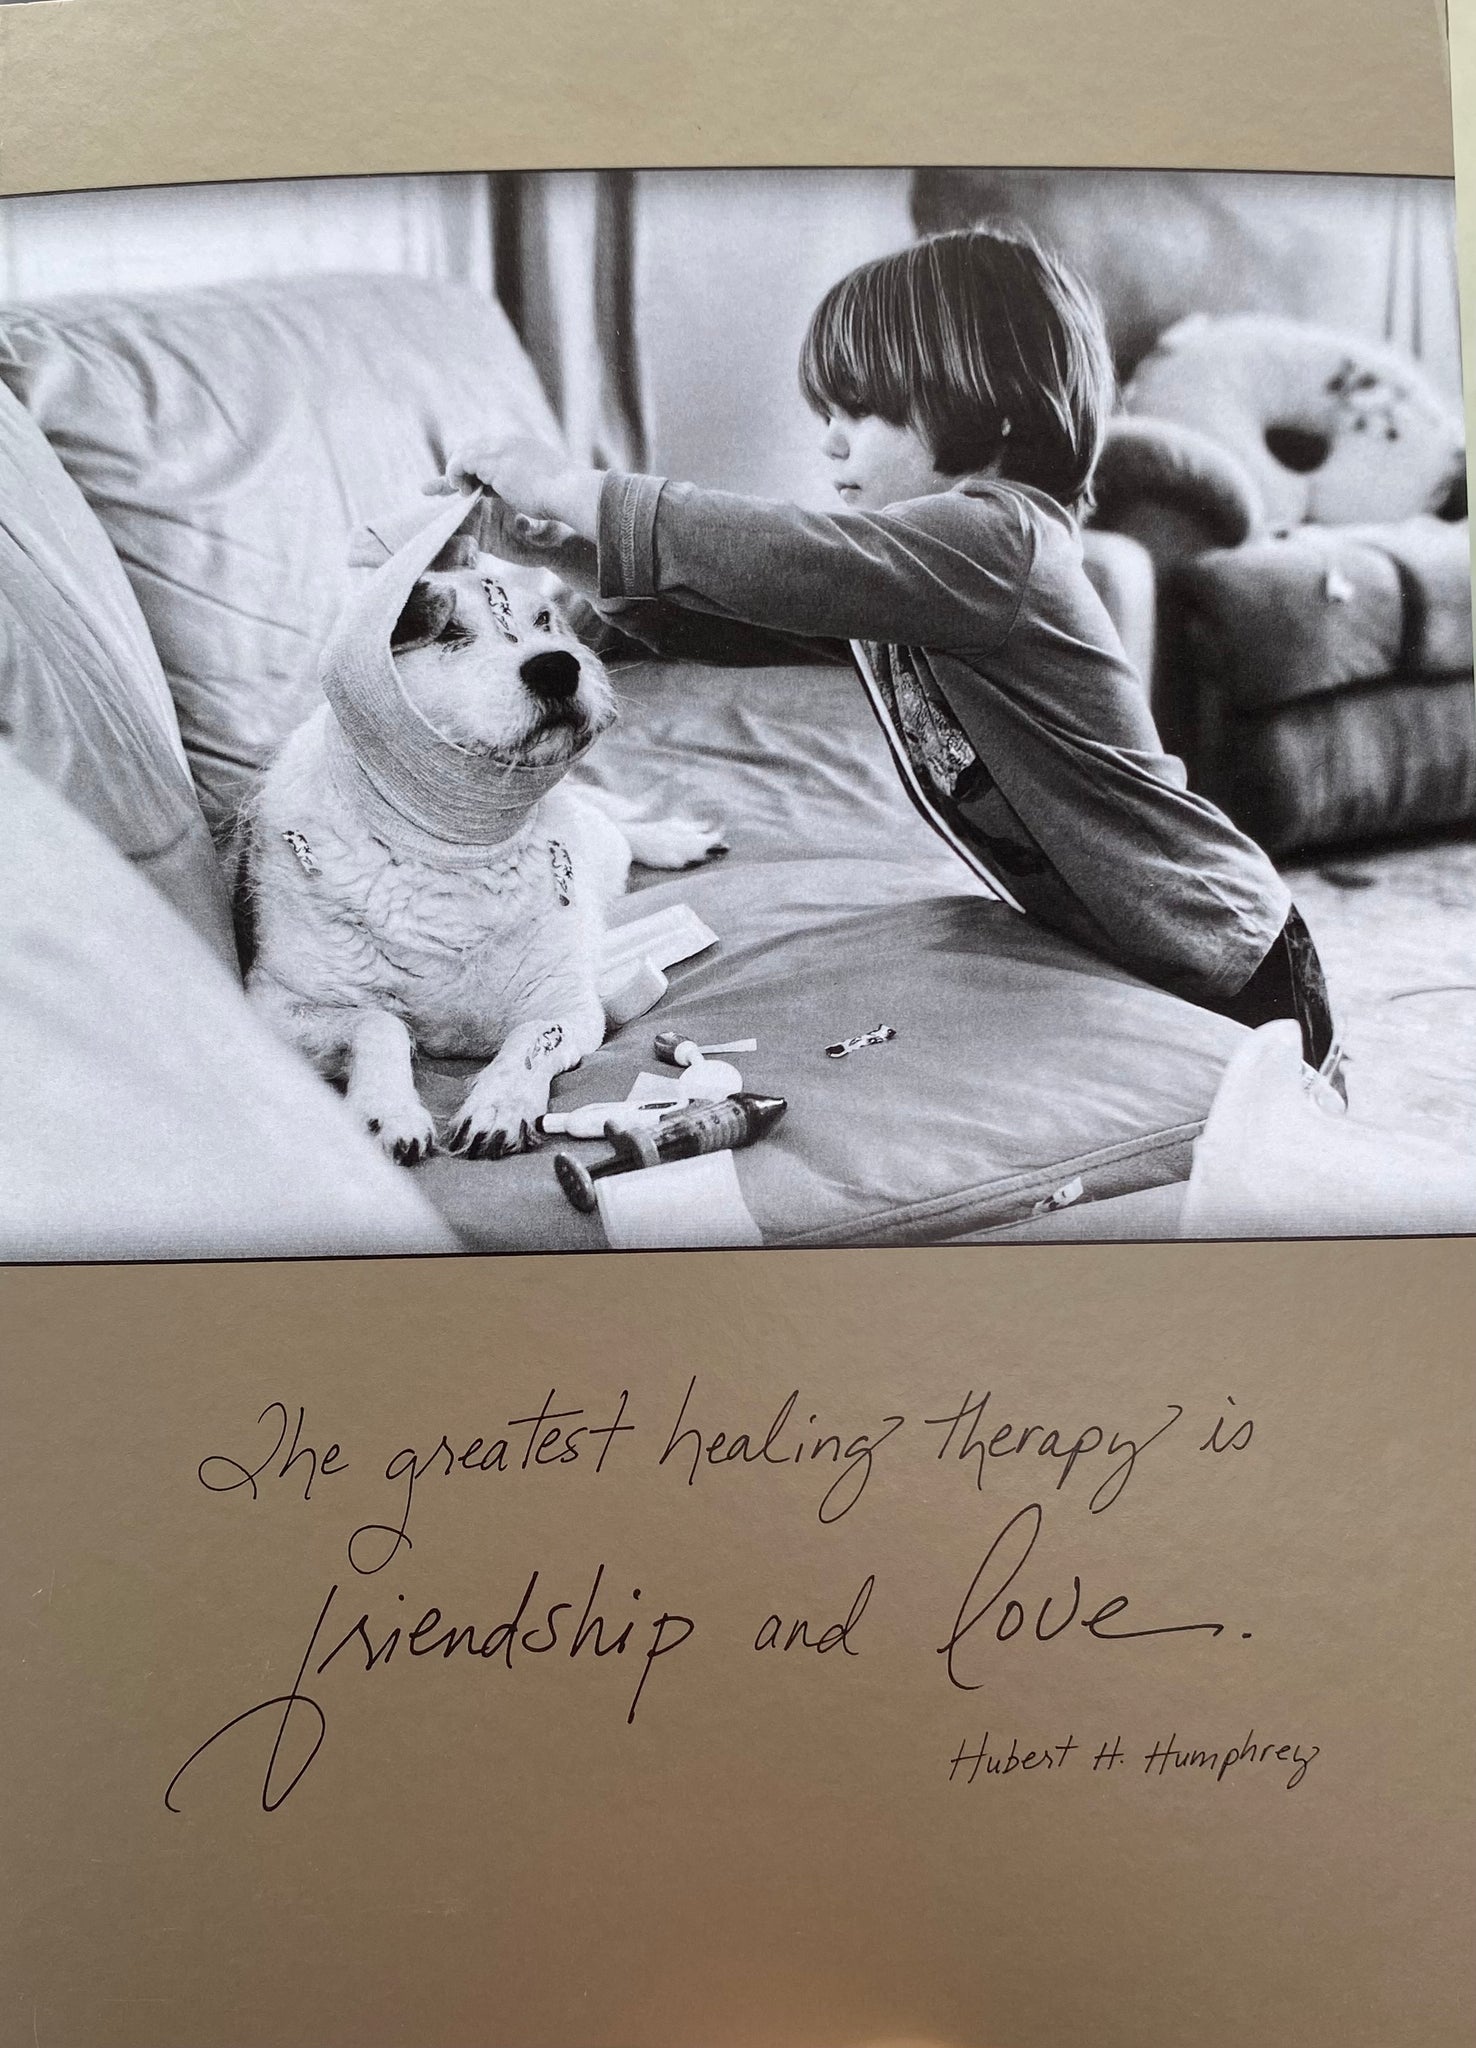 The greatest healing therapy is
friendship and love.
Hubert H. Humphrey